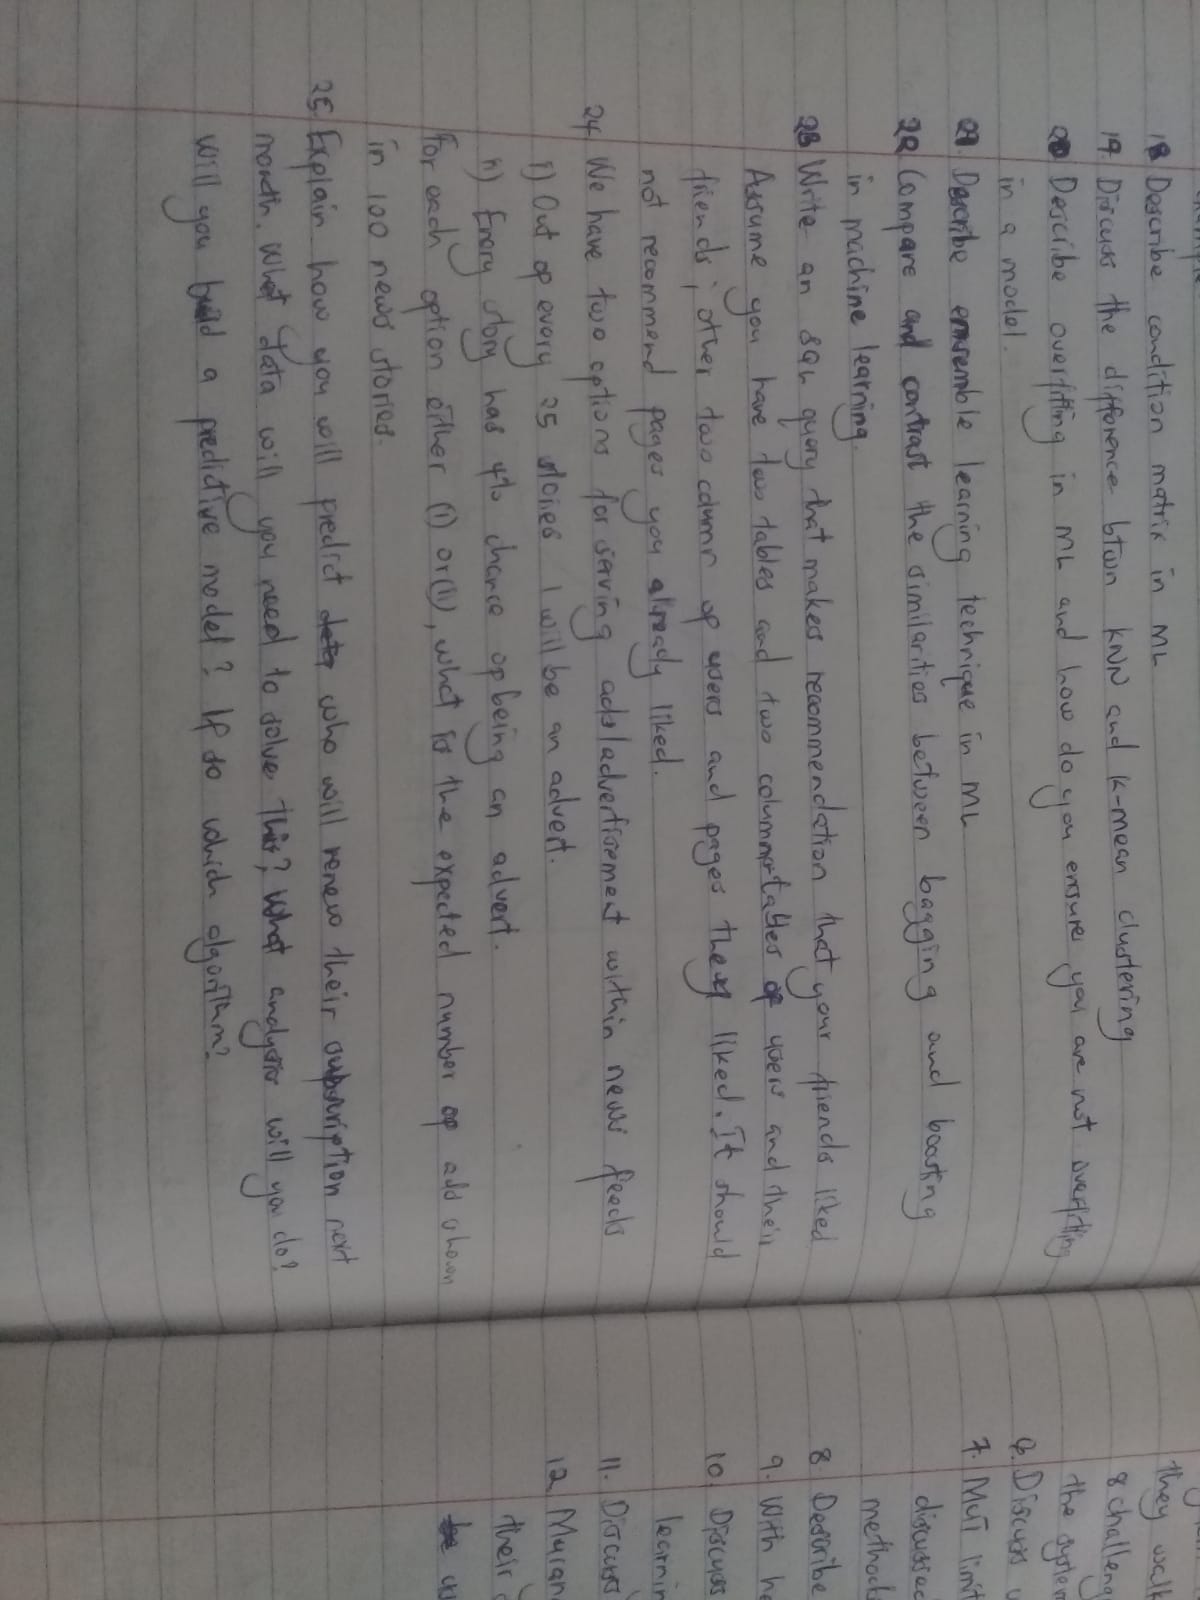 18 Describe condition matrix in ML
19. Discuss the difference btwn KNN and K-mean clustering
20 Describe overfitting in ML and how do you ensure you are not overfitting
in a model.
21. Describe ensemble learning technique in ML
22 Compare and contrast the similarities between bagging and boosting
in machine learning.
23 Write an SQL query that makes recommendation that your friends liked
Assume you have two tables and two column tables of users and their
friends; other two column of users and pages they liked. It should
not recommend pages you already liked.
24 We have two options for serving ads/advertisement within news feeds
i) Out of every 25 stories 1 will be an advert.
ii) Every story has 4% chance of being an advert.
For each option either (i) or (ii), what is the expected number of add shown
in 100 news stories.
25. Explain how you will predict who will renew their subscription next
month. What data will you need to solve this? What analysis will you do?
Will you build a predictive model? If so which algorithm?
they walk
8 challeng
the system
6. Discuss
7. MUT limit
discussed
method
8 Describe
9. With he
10 Discuss
learnin
11. Discuss
12 Muran
their